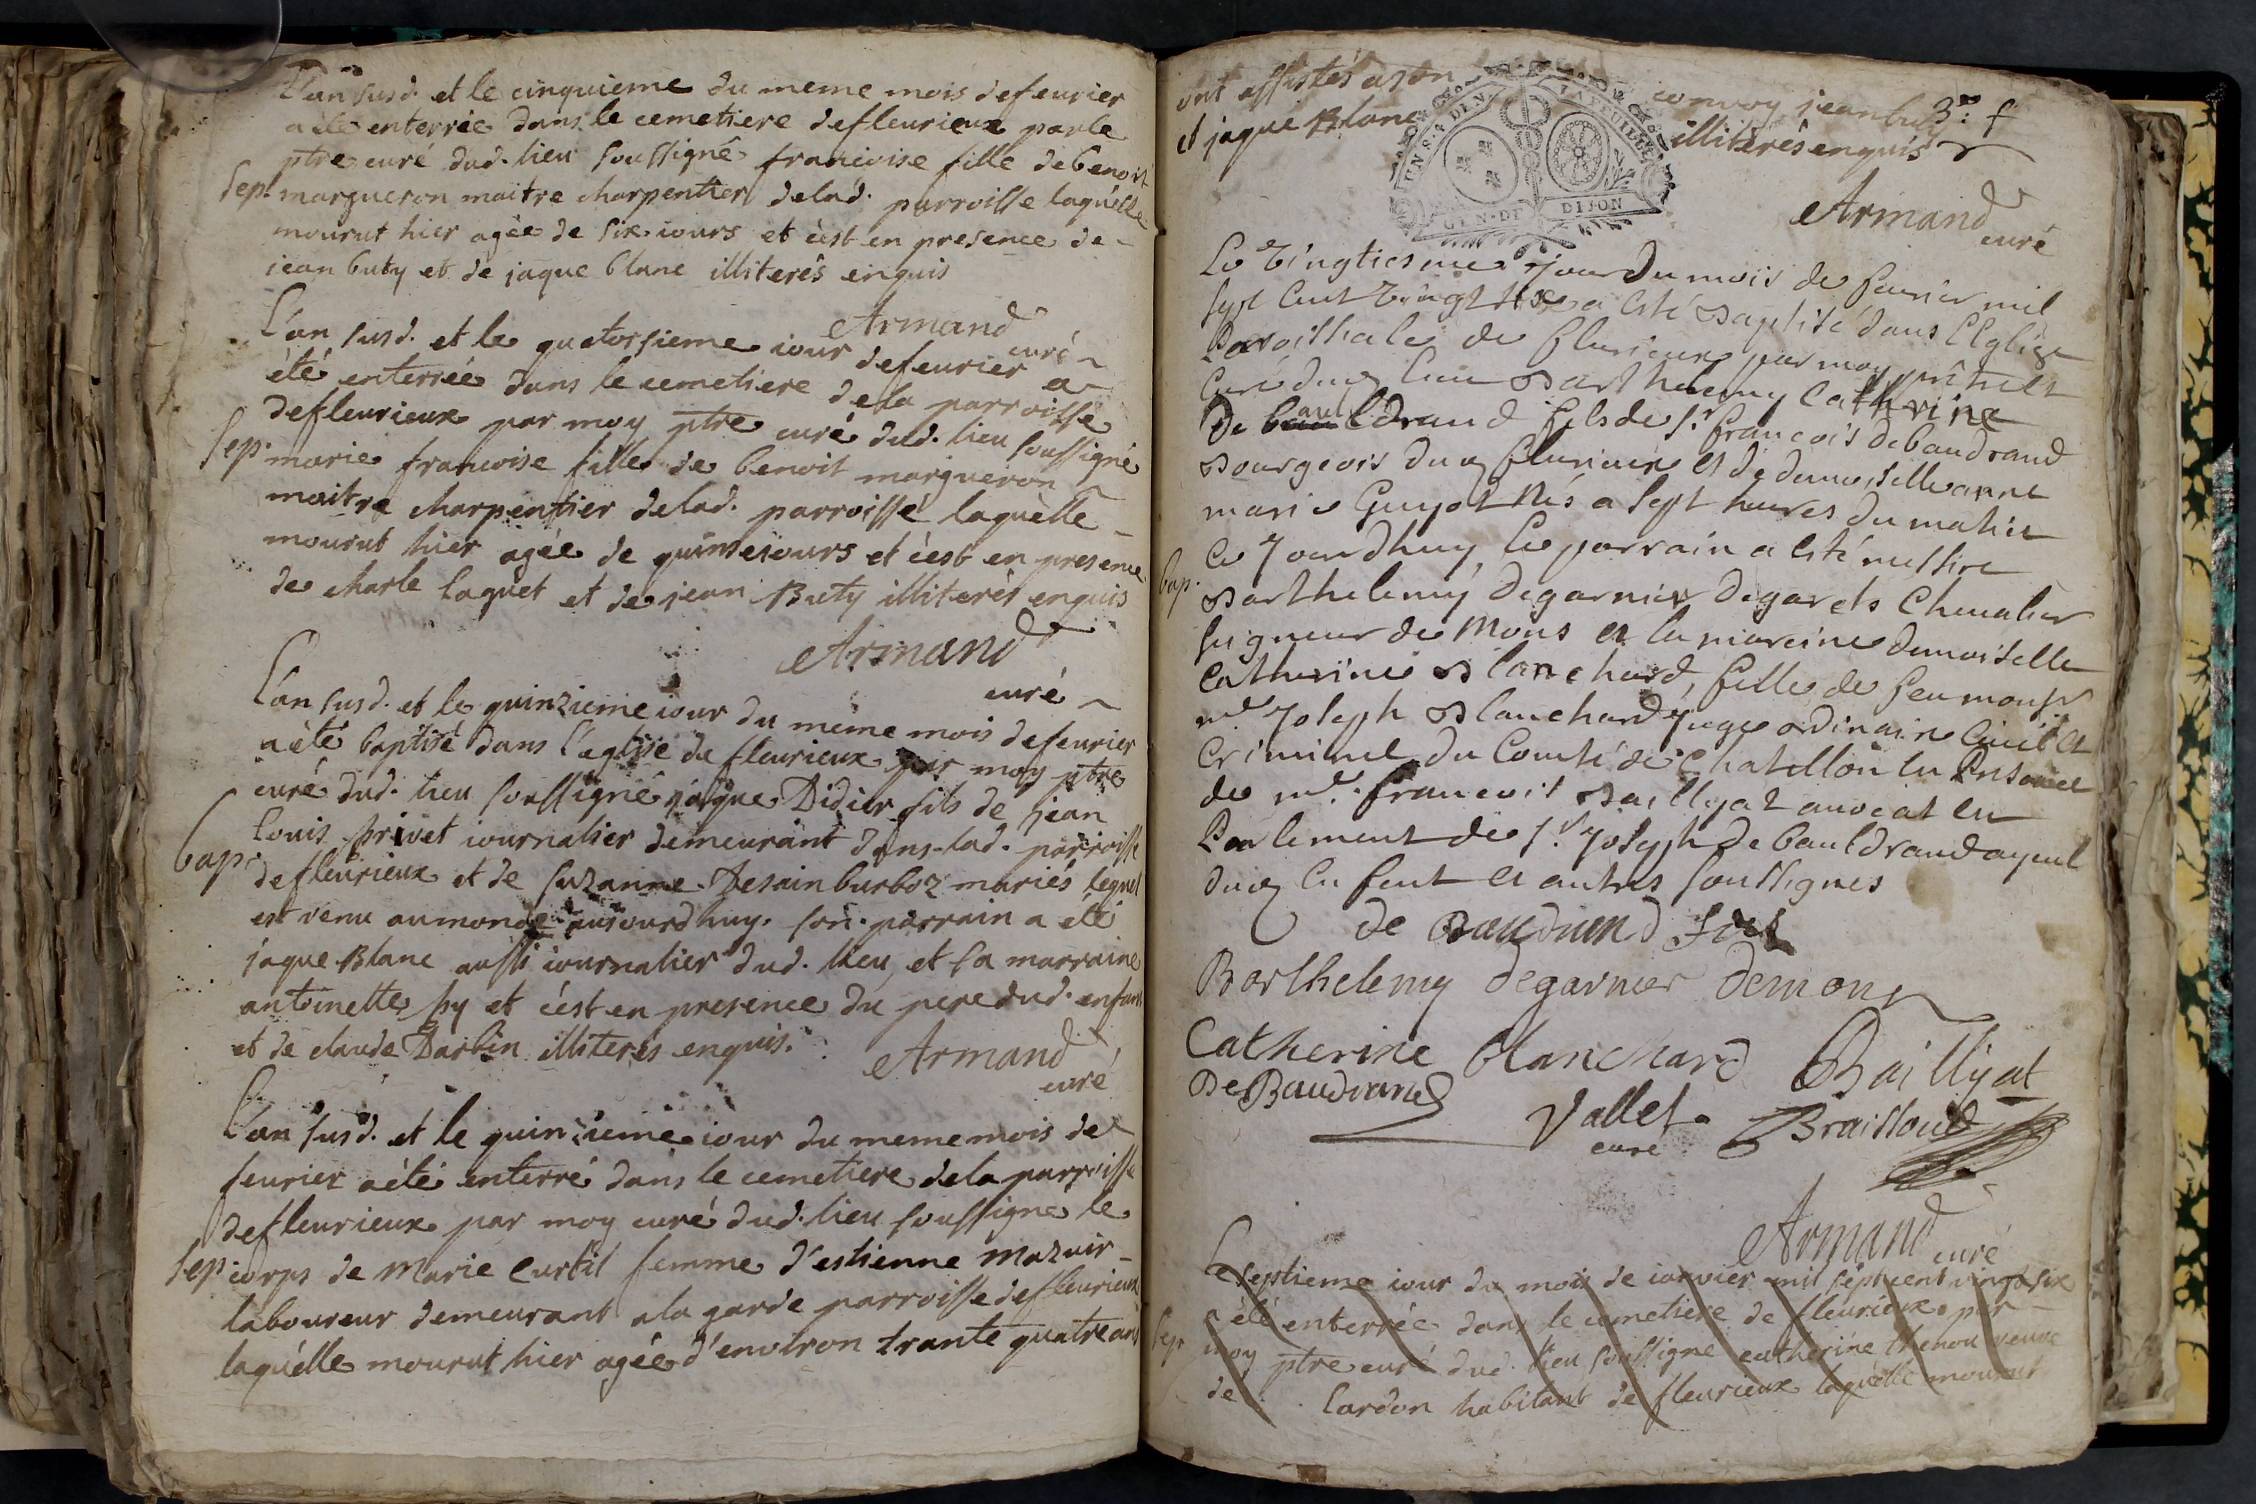 L'an susd. et le cinquieme du meme mois defeurier
a èté enterrée dans le cemetiere defleurieux parle
ptre curé dud. lieu soussigné francoise fille de benoit
Sep. margueron maitre charpentier delad. parroisse laquelle
mourut hier agée de six iours et c'est en presence de
jean buty et de jaque blanc illiterés enquis
Armand
curé
L'an susd. et le quatorsieme iour defeurier a
èté enterrée dans le cemetiere dela parroisse
defleurieux par moy ptre curé dud. lieu soussigné
Sep. marie francoise fille de benoit margueron
maitre charpentier delad. parroisse laquelle
mourut hier agée de quinse iours et c'est en presence
de charle laguet et de jean Buty illiterés enquis
Armand
curé
L'an susd. et le quinzieme iour du meme mois defeurier
a èté baptisé dans l'eglise de fleurieux par moy ptre
curé dud. lieu soussigné jaque Didier fils de jean
louis privet iournalier demeurant dans lad. parroisse
bap. defleurieux et de suzanne Desainburboz mariés lequel
est venu aumonde aujourdhuy. son parrain a èté
jaque Blanc aussi iournalier dud. lieu et sa marraine
antoinette py et c'est en presence du pere dud. enfant
et de claude Darbin illiterés enquis.
Armand
curé
L'an susd. et le quinzieme iour du meme mois de
feurier a èté enterré dans le cemetiere dela parroisse
defleurieux par moy curé dud. lieu soussigné le
Sep corps de Marie Curtil femme d'estienne Mazuir
laboureur demeurant a la garde parroisse defleurieux
laquelle mourut hier agée d'environ trante quatre ans
ont assistés a son convoy jean buty
et jaque Blanc illiterés enquis
3: f
GEN. DE DIJON
Armand
curé
Le Vingtiesme jour du mois de feurier mil
sept cent Vingt six a esté Baptisé dans l'Eglise
Paroissiale de flurieux par moy prêtre et
Curé dud lieu Barthelemy Catherine
De bauldrand fils de Sr. francois debaudrand
Bourgeois dud flurieux et de demoiselle anne
marie Guyot Nés a sept heures du matin
ce Jourdhuy le parrain a esté messire
bap. Barthelemy degarnier degarets Chevalier
seigneur de Mons et la maraine demoiselle
catherine Blanchard fille de feu monsr
me Joseph Blanchard Juge ordinaire Civil et
Criminel du Comté de Chatillon en presence
de me. francois Baillyat auocat en
Parlement de Sr. Joseph de bauldrand ayeul
dud enfent et autres soussignes
de Baudrand
Barthelemy degarnier demons
Catherine blanchard Baillyat
De Baudrand
Vallet Braissoud
curé
Armand
curé
Le septieme iour du mois de ianvier mil sept cent vingt six
a èté enterrée dans le cemetiere de fleurieux par
Sep moy ptre curé dud. lieu soussigné catherine thenou veuve
de lardon habitant de fleurieux laquelle mourut